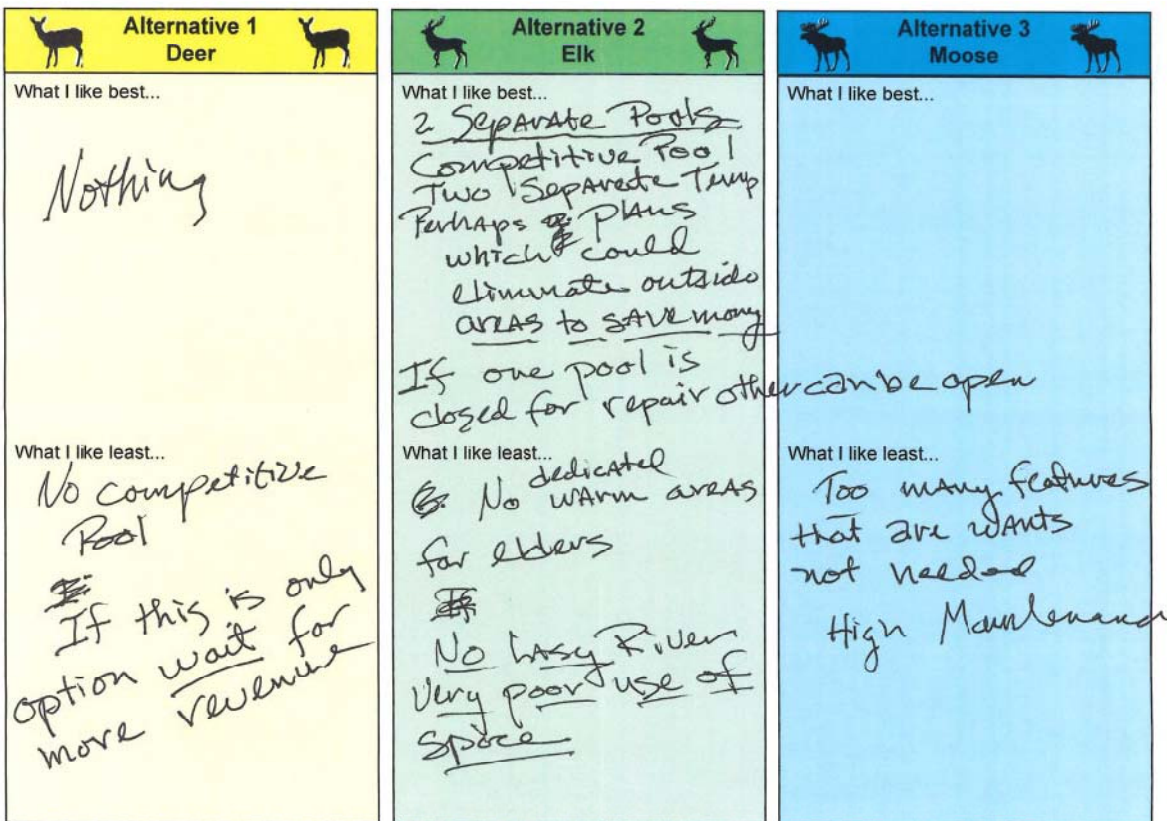 Alternative 1
Deer
What I like best...
Nothing
What I like least...
No competitive
Pool
If this is only
option wait for
more revenue
Alternative 2
Elk
What I like best...
2 Separate Pools
Competitive Pool
Two Separate Temp
Perhaps plans
which could
eliminate outside
areas to save mony
If one pool is
closed for repair other can be open
What I like least...
No dedicated warm areas
for elders
No Lasy River
Very poor use of
space
Alternative 3
Moose
What I like best...
What I like least...
Too many features
that are wants
not needed
High